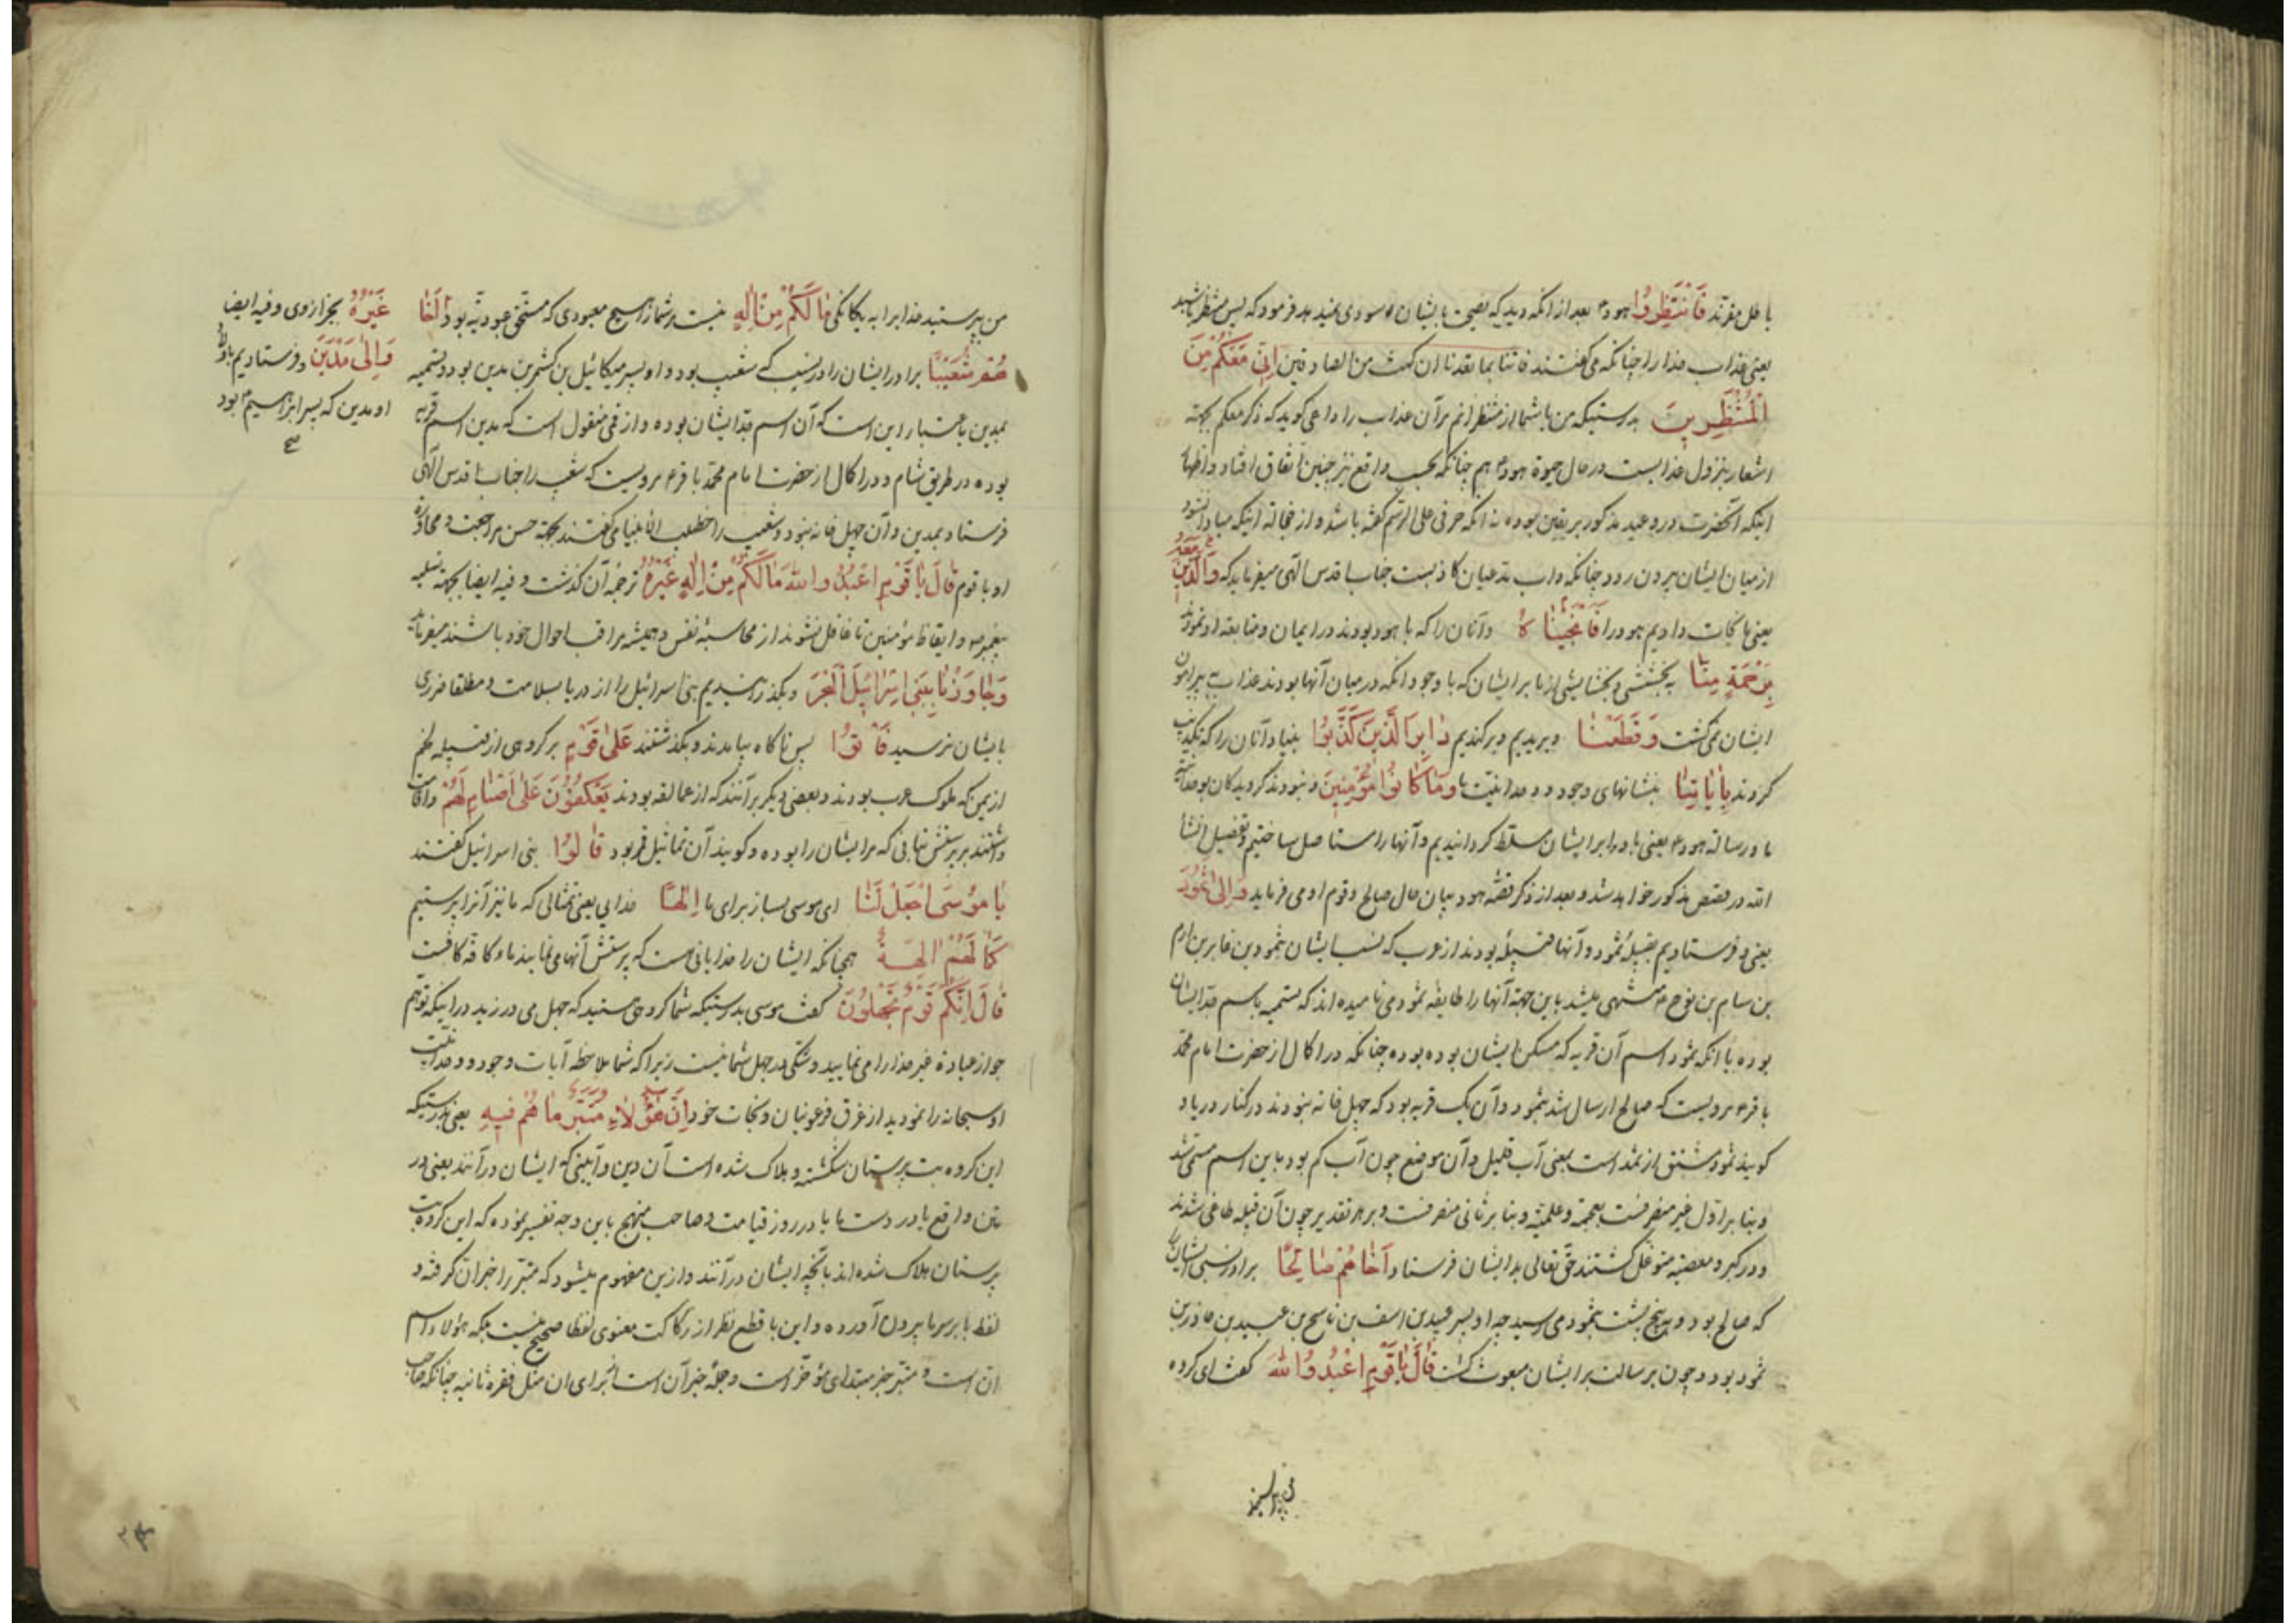 باطل مقرند فَانْتَظِرُوا هود۴ بعد از انکه دید که نصیحت بایشان سودی نمیدهد فرمود که پس منتظر باشید
یعنی عذاب خدا را چنانکه می گفتند فاتنا بما تعدنا ان کنت من الصادقین اِنّی مَعَکُمْ مِنَ
الْمُنْتَظِرینَ بدرستیکه من با شما از منتظرانم مر آن عذاب را داعی کوید که ذکر معکم بجهته
اشعار بنزول عذابست در حال حیوة هود۴ هم چنانکه بحسب واقع نیز چنین اتفاق افتاد و اظهار
اینکه آنحضرت در وعید مذکور بر یقین بوده نه انکه حرفی علی الرسم گفته باشد و از خجالة اینکه مبادا نشود
از میان ایشان بیرون رود چنانکه داب مدعیان کاذبست جناب اقدس الهی میفرماید که وَالَّذینَ مَعَهُ
یعنی ما نجات دادیم هود را فَاَنْجَیْناهُ و آنان را که با هود بودند در ایمان و متابعه او نمودند
بِرَحْمَةٍ مِنَّا ببخششی و بخشایشی از ما بر ایشان که با وجود انکه در میان آنها بودند عذاب پیرامون
ایشان نمی کشت وَقَطَعْنا و بریدیم و برکندیم دابِرَ الَّذینَ کَذَّبُوا بنیاد آنان را که تکذیب
کردند بِایاتِنا بنشانهای وجود و وحدانیت ما وَما کانُوا مُؤْمِنینَ و نبودند کرویدکان بوحدانیت
ما و رسالة هود۴ یعنی باد را بر ایشان مسلط کردانیدیم و آنها را مستاصل ساختیم و تفصیل انشا
الله در قصص مذکور خواهد شد و بعد از ذکر قصّه هود بیان حال صالح و قوم او می فرماید وَاِلی ثَمُودَ
یعنی و فرستادیم بقبیلۀ ثمود و آنها قبیلۀ بودند از عرب که نسب ایشان بثمود بن عابر بن ارم
بن سام بن نوح۴ منتهی میشد باین جهته آنها را طایفه ثمود می نامیده اند که تسمیه باسم جد ایشان
بوده یا انکه ثمود اسم آن قریه که مسکن ایشان بوده بوده چنانکه در اکمال از حضرت امام محمد
باقر۴ مرویست که صالح ارسال شد بثمود و آن یک قریه بود که چهل خانه نبودند در کنار دریا و
کویند ثمود مشتق از ثمد است بمعنی آب قلیل و آن موضع چون آب کم بود باین اسم مسمّی شد
و بنا بر اوّل غیر منصرفست بعجمه و علمیّته و بنا بر ثانی منصرفست و بر هر تقدیر چون آن قبیله طاغی شدند
و در کبر و معصیته متوغل کشتند حق تعالی بدایشان فرستاد اَخاهُمْ صالِحًا برادر نسبی ایشان را
که صالح بود و به پنج پشت بثمود می رسید چه او پسر عبید بن اسف بن ناسخ بن عبید بن حاذر بن
ثمود بود و چون برسالت بر ایشان مبعوث کشت قالَ یا قَوْمِ اعْبُدُوا اللّهَ کفت ای کروه
من بپرستید خدا را به یکانکی ما لَکُمْ مِنْ اِلهٍ نیست مر شما را هیچ معبودی که مستحق عبودیّه بود اَخا
غَیْرُهُ بجز از وی و فیه ایضا
وَاِلی مَدْیَنَ و فرستادیم باولاد
او مدین که پسر ابراهیم۴ بود
هُمْ شُعَیْبًا برادر ایشان را در نسب که شعیب بود و او پسر میکائیل بن یشجر بن مدین بود و تسمیه
بمدین باعتبار این است که آن اسم جدّ ایشان بوده و از قمی منقول است که مدین اسم قریه
بوده در طریق شام و در اکمال از حضرت امام محمّد باقر۴ مرویست که شعیب را جناب اقدس الهی
فرستاد بمدین و آن چهل خانه نبود و شعیب را خطیب الانبیا می کفتند بجهته حسن مراجعت و محاورة
او با قوم قالَ یا قَوْمِ اعْبُدُوا اللّهَ ما لَکُمْ مِنْ اِلهٍ غَیْرُهُ ترجمۀ آن کذشت و فیه ایضا بجهته تسلیه
پیغمبر ص و ایقاظ مؤمنین تا غافل نشوند از محاسبۀ نفس و همیشه مراقب احوال خود باشند میفرماید
وَجاوَزْنا بِبَنی اِسْرائیلَ الْبَحْرَ و بکذرانیدیم بنی اسرائیل را از دریا بسلامت و مطلقا ضرری
بایشان نرسید فَاَتَوْا پس ناکاه بیامدند و بکذشتند عَلی قَوْمٍ بر کروهی از قبیله لخم
از یمن که ملوک عرب بودند و بعضی دیکر برآنند که از عمالقه بودند یَعْکُفُونَ عَلی اَصْنامٍ لَهُمْ و اقامت
داشتند بر پرستش بتانی که مر ایشان را بوده و کویند آن تماثیل بقر بود قالُوا بنی اسرائیل کفتند
یا مُوسَی اجْعَلْ لَنا ای موسی بساز برای ما اِلهًا خدایی یعنی تمثالی که ما نیز آنرا پرستیم
کَما لَهُمْ الِهَةٌ همچنانکه ایشان را خدایانی است که پرستش آنها می نمایند و ما کافه کافست
قالَ اِنَّکُمْ قَوْمٌ تَجْهَلُونَ کفت موسی بدرستیکه شما کروهی هستید که جهل می ورزید در اینکه توهم
جواز عبادة غیر خدا را می نمایید و شکی در جهل شما نیست زیرا که شما ملاحظه آیات وجود و وحدانیّت
او سبحانه را نمودید از غرق فرعونیان و نجات خود اِنَّ هؤُلاءِ مُتَبَّرٌ ما هُمْ فیهِ یعنی بدرستیکه
این کروه بت پرستان شکسته و هلاک شده است آن دین و آیینی که ایشان درآنند یعنی در
متن واقع یا در دست ما یا در روز قیامت و صاحب منهج باین وجه تفسیر نموده که این کروه بت
پرستان هلاک شده اند بآنچه ایشان درآنند و ازین مفهوم میشود که متبّر را خبر ان کرفته و
لفظ با بر سر ما بیرون آورده و این با قطع نظر از رکاکت معنوی لفظا صحیح نیست بلکه هؤلاء اسم
ان است و متبّر خبر مبتدای مؤخّر است و جملۀ خبر آن است برای ان مثل فقره ثانیه چنانکه صاحب